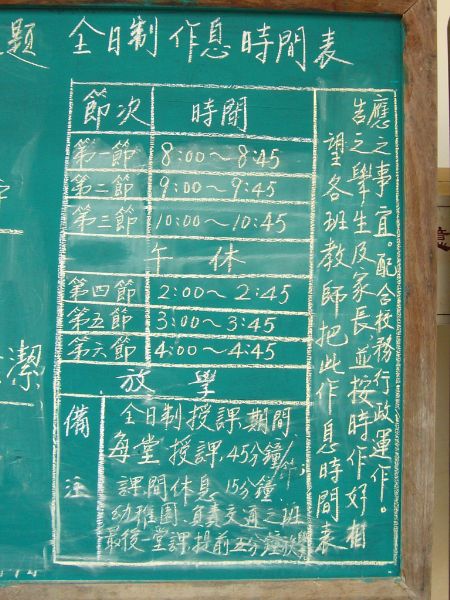 題
全日制作息時間表
節次 時間
第一節 8:00～8:45
第二節 9:00～9:45
第三節 10:00～10:45
午休
第四節 2:00～2:45
第五節 3:00～3:45
第六節 4:00～4:45
放學
備注
全日制授課期間
每堂授課45分鐘/節;
課間休息15分鐘
幼稚園、負責交通之班
最後一堂課提前五分鐘放學
望各班教師把此作息時間表
告之學生及家長,並按時作好相
應之事宜。配合校務行政運作。
潔